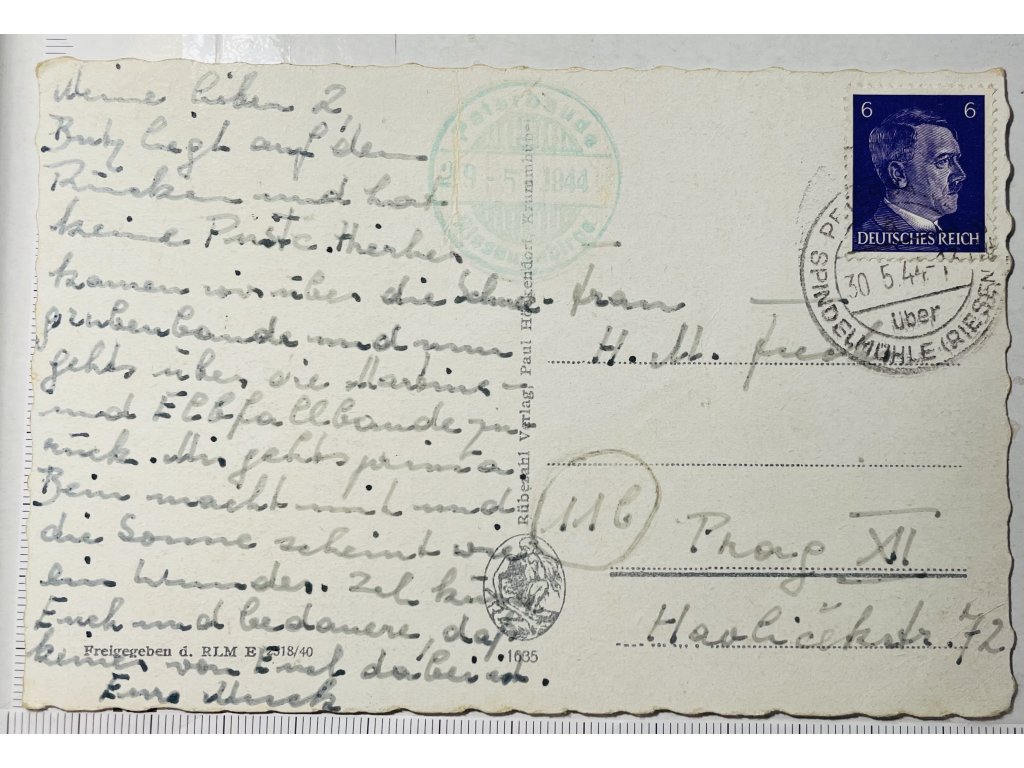 Meine lieben 2,
Butz liegt auf dem
Rücken und hat
keine Puste. Hierher
kamen wir über die Schnee-
grubenbaude und nun
gehts über die Martins-
und Elbfallbaude zu-
rück. Mir gehts prima
Bein macht mit und
die Sonne scheint wie
ein Wunder.
Euch und bedauere, daß
keiner von Euch dabei ist.
Eure Muck
Freigegeben d. RLM E 2518/40
1635
Peterbaude
29-5-1944
Riesengebirge
Rübezahl Verlag, Paul Krummhübel
6 6
DEUTSCHES REICH
30.5.44
über
SPINDELMÜHLE (RIESEN
Frau
H. M.
11b
Prag XII
Havličekstr. 72